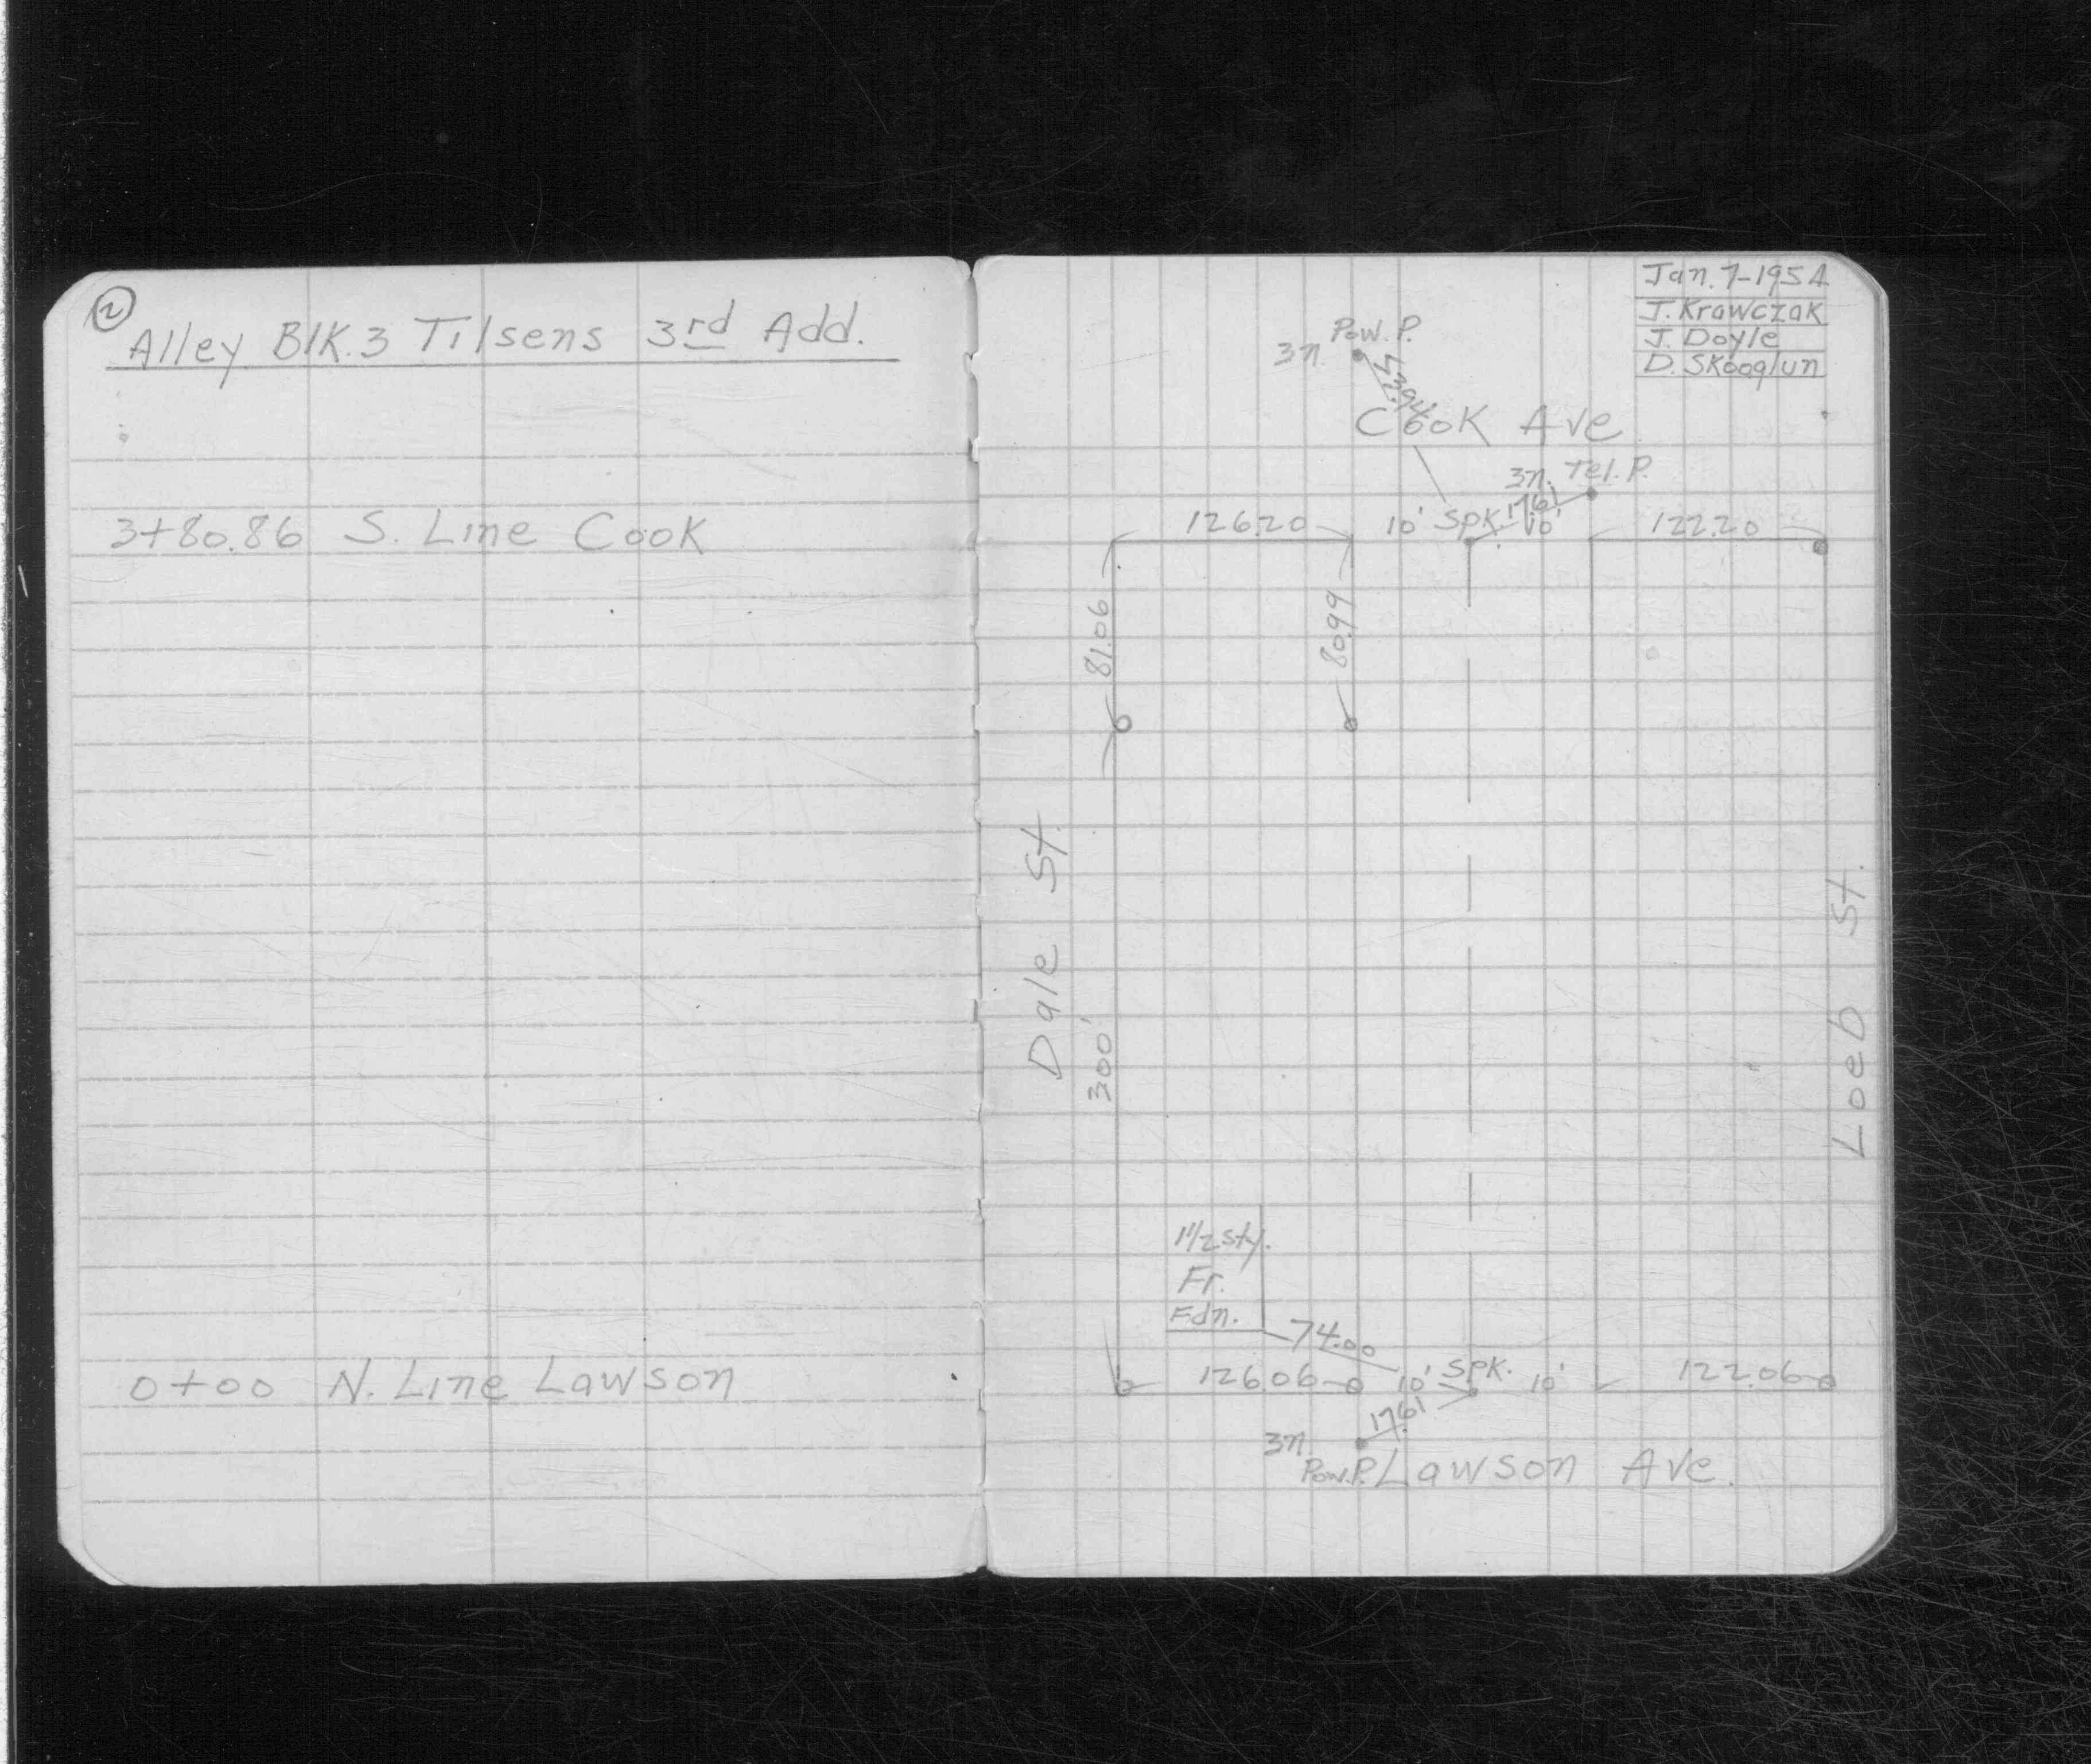 2
Alley Blk. 3 Tilsens 3rd Add.
3+80.86 S. Line Cook
0+00 N. Line Lawson
Jan. 7-1954
J. Krawczak
J. Doyle
D. Skooglun
Pow. P.
3n.
Cook Ave
3n. Tel. P.
17.61
126.20 10' Spk. 10' 122.20
81.06
80.99
Dale St.
300'
Loeb St.
1 1/2 sty.
Fr.
Fdn.
74.00
126.06 10' Spk. 10' 122.06
17.61
3n.
Pow. P.
Lawson Ave.